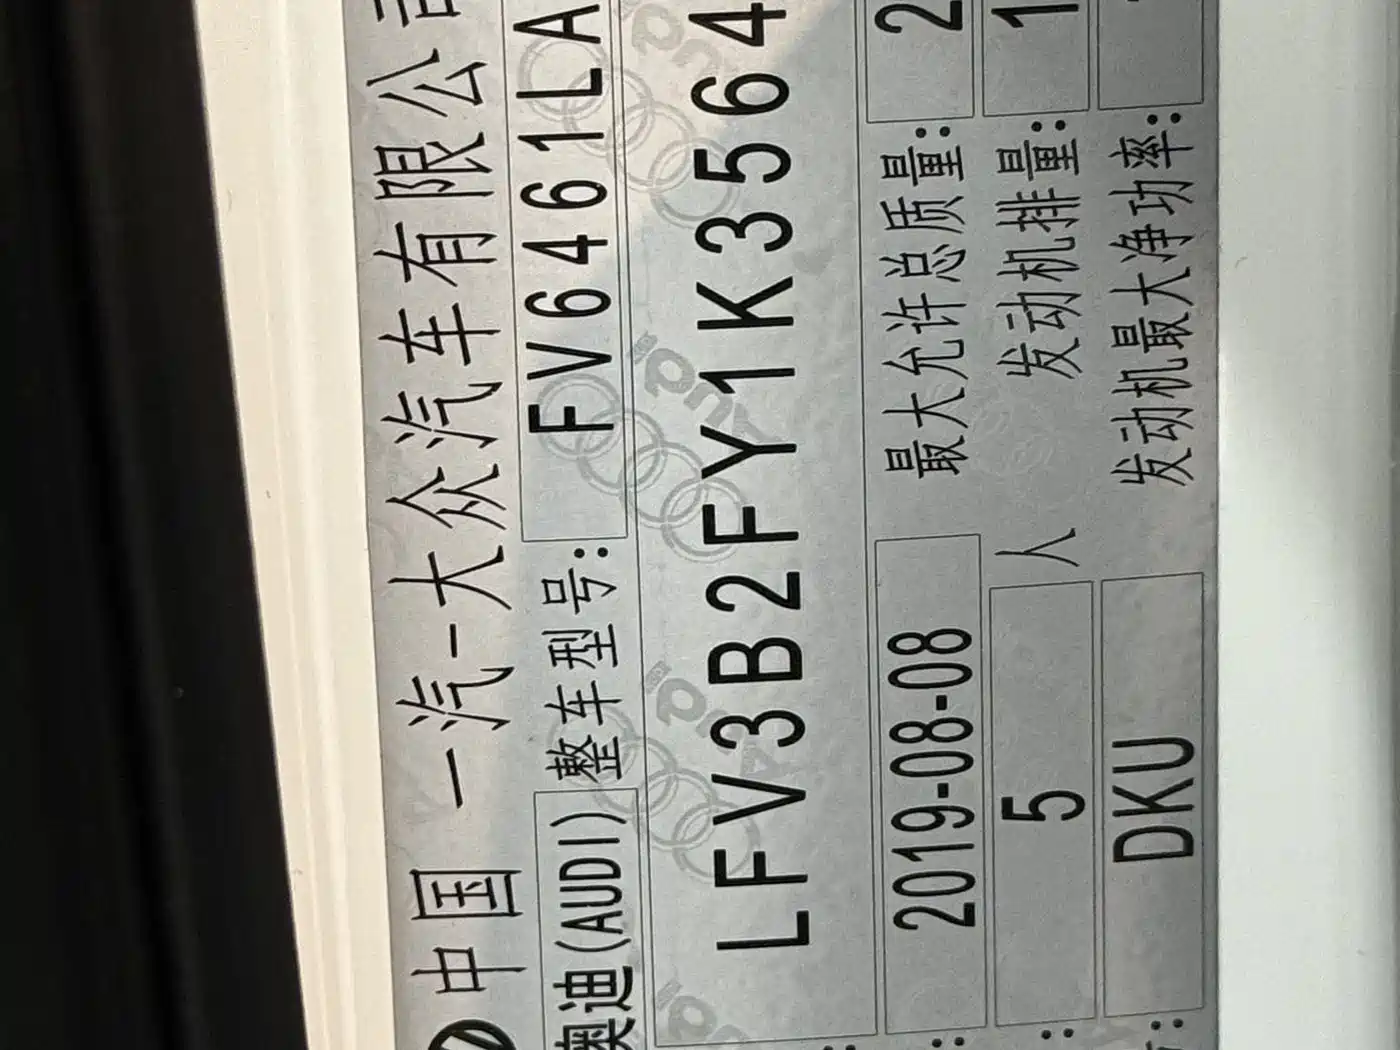 中国 一汽-大众汽车有限公司
奥迪(AUDI) 整车型号: FV6461LA
LFV3B2FY1K3564
2019-08-08 最大允许总质量: 2
5 人 发动机排量: 1
DKU 发动机最大净功率:
Audi
Audi
Audi
Audi